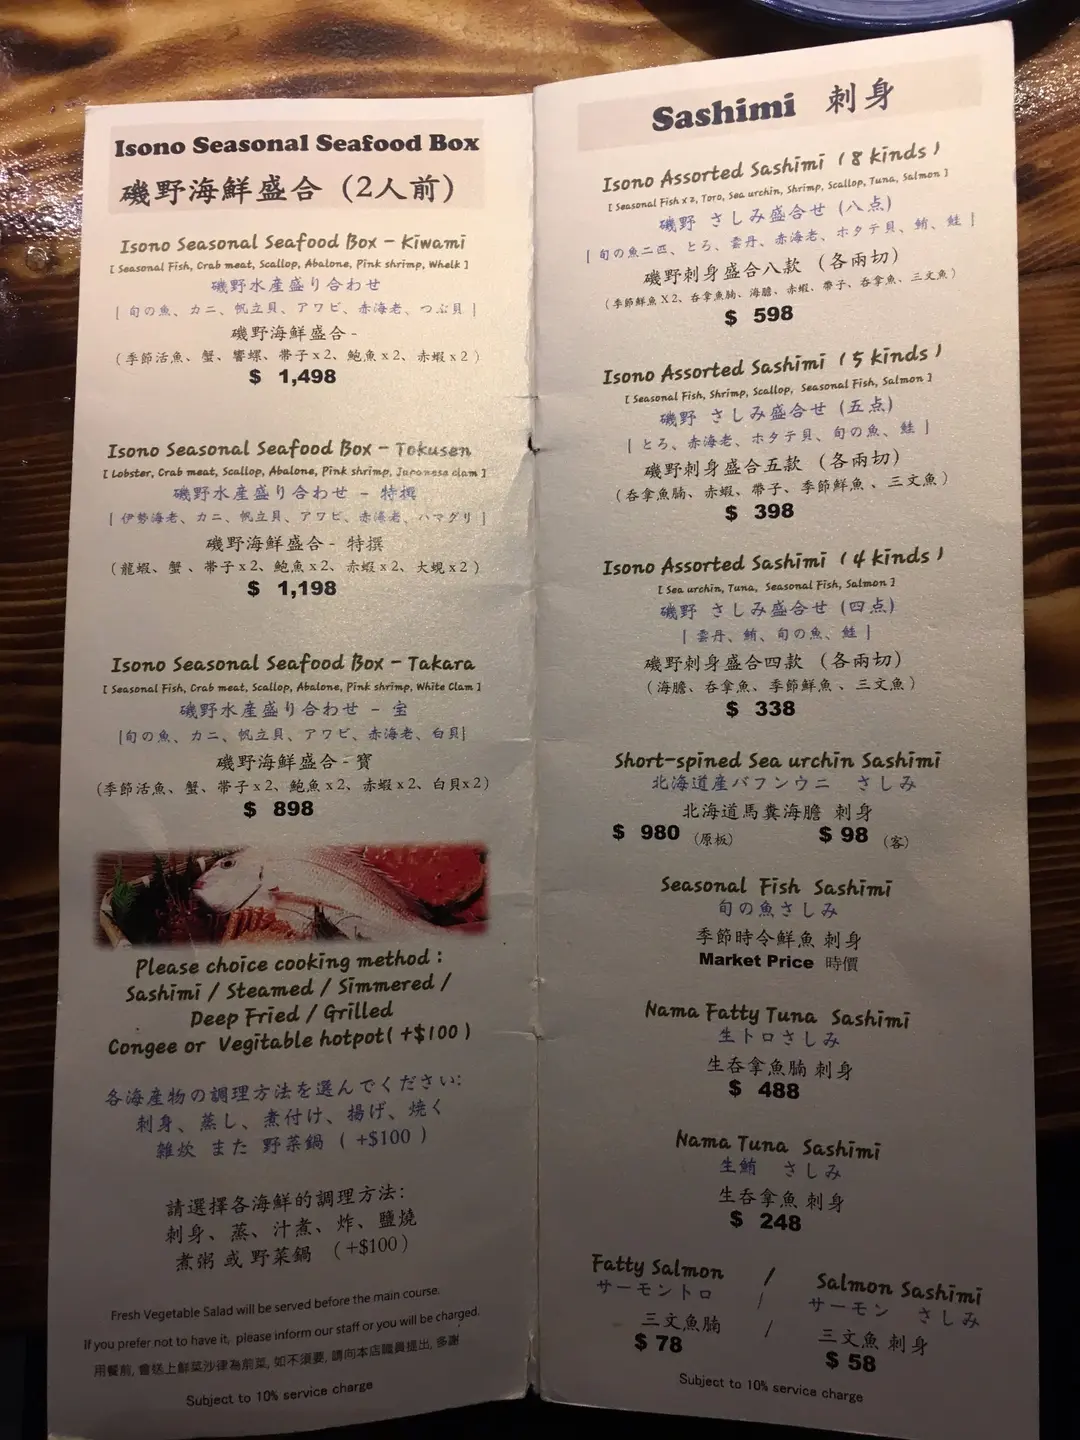 Isono Seasonal Seafood Box
磯野海鮮盛合（2人前）
Isono Seasonal Seafood Box - Kiwami
[ Seasonal Fish, Crab meat, Scallop, Abalone, Pink shrimp, Whelk ]
磯野水産盛り合わせ
[ 旬の魚、カニ、帆立貝、アワビ、赤海老、つぶ貝 ]
磯野海鮮盛合 -
（季節活魚、蟹、響螺、帶子x2、鮑魚x2、赤蝦x2 ）
$ 1,498
Isono Seasonal Seafood Box - Tokusen
[ Lobster, Crab meat, Scallop, Abalone, Pink shrimp, Japanese clam ]
磯野水産盛り合わせ - 特撰
[ 伊勢海老、カニ、帆立貝、アワビ、赤海老、ハマグリ ]
磯野海鮮盛合 - 特撰
（龍蝦、蟹 、帶子x2、鮑魚x2、赤蝦x2、大蜆x2 ）
$ 1,198
Isono Seasonal Seafood Box - Takara
[ Seasonal Fish, Crab meat, Scallop, Abalone, Pink shrimp, White Clam ]
磯野水産盛り合わせ - 宝
[旬の魚、カニ、帆立貝、アワビ、赤海老、白貝]
磯野海鮮盛合 - 寶
（季節活魚、蟹、帶子x2、鮑魚x2、赤蝦x2、白貝x2）
$ 898
Please choice cooking method :
Sashimi / Steamed / Simmered /
Deep Fried / Grilled
Congee or Vegitable hotpot( +$100 )
各海産物の調理方法を選んでください:
刺身、蒸し、煮付け、揚げ、焼く
雑炊 また 野菜鍋 ( +$100 )
請選擇各海鮮的調理方法:
刺身、蒸、汁煮、炸、鹽燒
煮粥 或 野菜鍋 （+$100）
Fresh Vegetable Salad will be served before the main course.
If you prefer not to have it, please inform our staff or you will be charged.
用餐前, 會送上鮮菜沙律為前菜, 如不須要, 請向本店職員提出, 多謝
Subject to 10% service charge
Sashimi 刺身
Isono Assorted Sashimi ( 8 kinds )
[ Seasonal Fish x 2, Toro, Sea urchin, Shrimp, Scallop, Tuna, Salmon ]
磯野 さしみ盛合せ (八点)
[ 旬の魚二匹、とろ、雲丹、赤海老、ホタテ貝、鮪、鮭 ]
磯野刺身盛合八款 （各兩切）
（季節鮮魚X2、吞拿魚腩、海膽、赤蝦、帶子、吞拿魚、三文魚）
$ 598
Isono Assorted Sashimi ( 5 kinds )
[ Seasonal Fish, Shrimp, Scallop, Seasonal Fish, Salmon ]
磯野 さしみ盛合せ (五点)
[ とろ、赤海老、ホタテ貝、旬の魚、鮭 ]
磯野刺身盛合五款 （各兩切）
（吞拿魚腩、赤蝦、帶子、季節鮮魚 、三文魚）
$ 398
Isono Assorted Sashimi ( 4 kinds )
[ Sea urchin, Tuna, Seasonal Fish, Salmon ]
磯野 さしみ盛合せ (四点)
[ 雲丹、鮪、旬の魚、鮭 ]
磯野刺身盛合四款 （各兩切）
（海膽、吞拿魚、季節鮮魚 、三文魚）
$ 338
Short-spined Sea urchin Sashimi
北海道産バフンウニ さしみ
北海道馬糞海膽 刺身
$ 980 (原板) $ 98 (客)
Seasonal Fish Sashimi
旬の魚さしみ
季節時令鮮魚 刺身
Market Price 時價
Nama Fatty Tuna Sashimi
生トロさしみ
生吞拿魚腩 刺身
$ 488
Nama Tuna Sashimi
生鮪 さしみ
生吞拿魚 刺身
$ 248
Fatty Salmon / Salmon Sashimi
サーモントロ / サーモン さしみ
三文魚腩 / 三文魚 刺身
$ 78 $ 58
Subject to 10% service charge